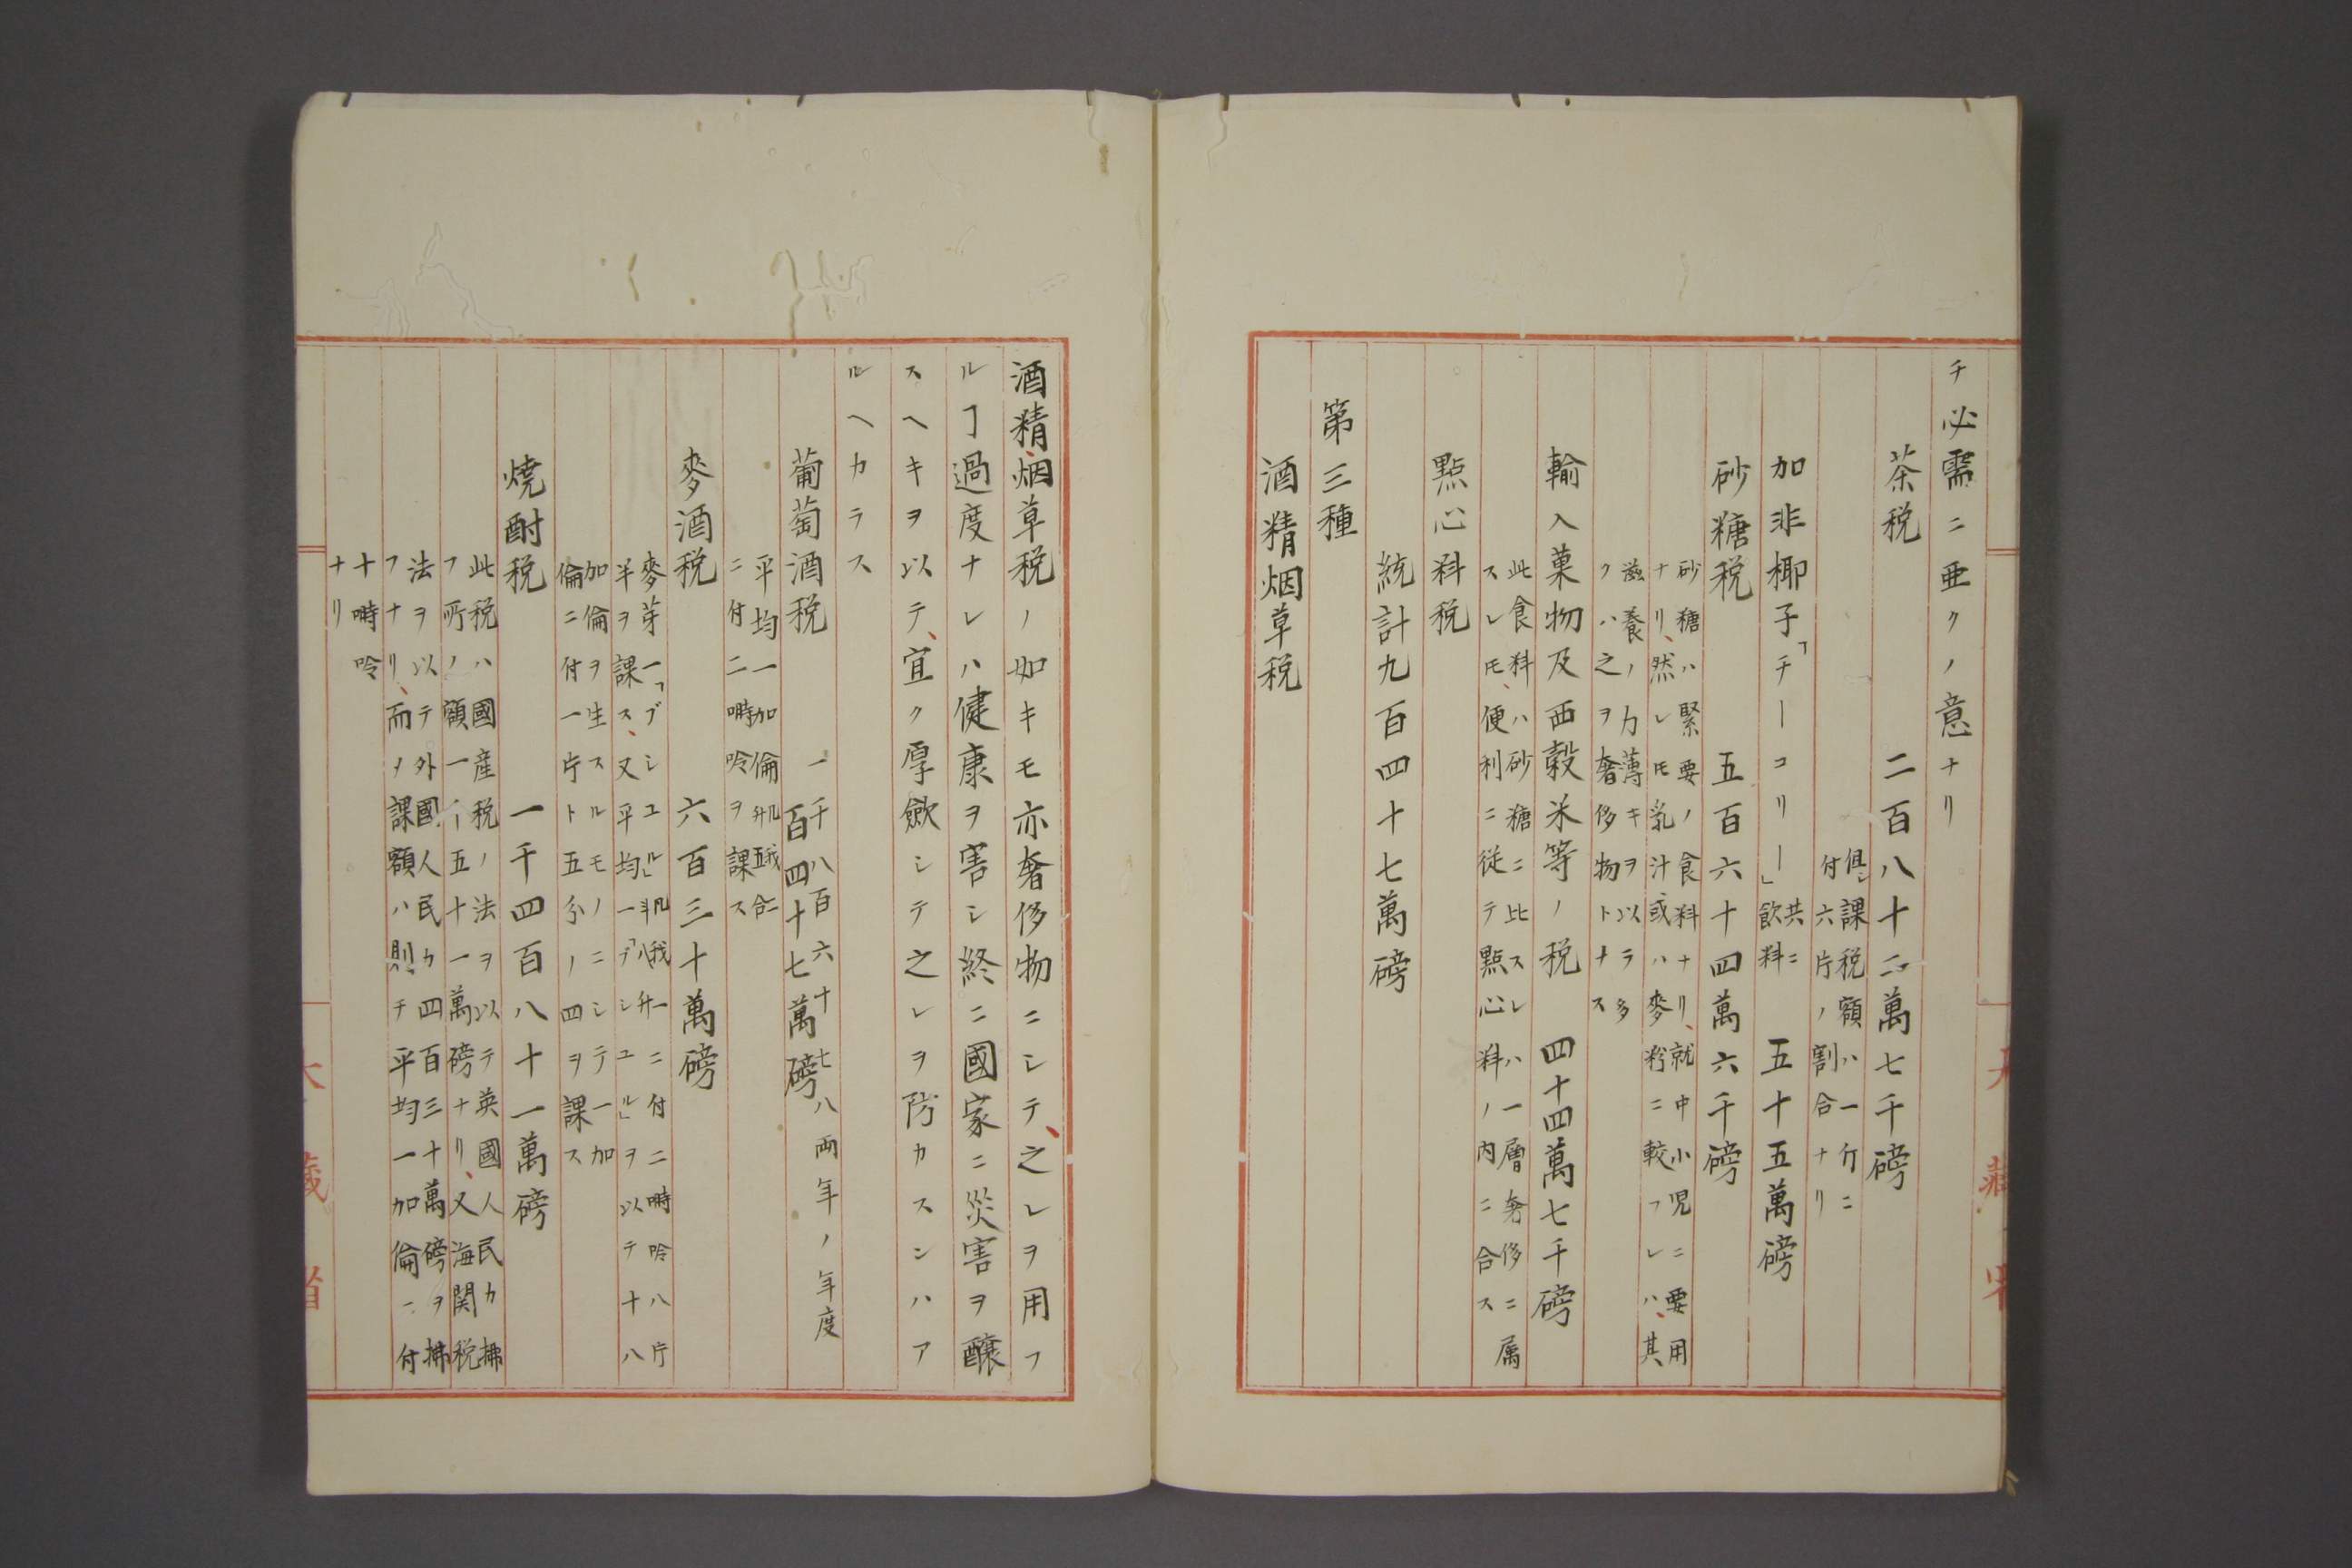 チ必需ニ亜クノ意ナリ
茶税　二百八十二萬七千磅
倶ニ課税額ハ一斤ニ
付六片ノ割合ナリ
加非椰子「チーコリー」共ニ飲料　五十五萬磅
砂糖税　五百六十四萬六千磅
砂糖ハ緊要ノ食料ナリ、就中小児ニ要用
ナリ、然レ𪜈乳汁或ハ麥粉ニ較フレハ、其
滋養ノ力薄キヲ以テ多
クハ之ヲ奢侈物トナス
輸入菓物及西穀米等ノ税　四十四萬七千磅
此食料ハ砂糖ニ比スレハ一層奢侈ニ属
スレ𪜈、便利ニ従テ點心料ノ内ニ合ス
點心料税
統計九百四十七萬磅
第三種
酒精烟草税
酒精、烟草税ノ如キモ亦奢侈物ニシテ、之レヲ用フ
ルヿ過度ナレハ健康ヲ害シ終ニ國家ニ災害ヲ醸
スヘキヲ以テ、宜ク厚歛シテ之レヲ防カスンハア
ルヘカラス
葡萄酒税　一千八百六十七八両年ノ年度
百四十七萬磅
平均一加倫凡我二升五合
ニ付二時呤ヲ課ス
麥酒税　六百三十萬磅
麥芽一「ブシユル」凡我一斗八升ニ付二時呤八片
半ヲ課ス、又平均一「ブシユル」ヲ以テ十八
加倫ヲ生スルモノニシテ一加
倫ニ付一片ト五分ノ四ヲ課ス
焼酎税　一千四百八十一萬磅
此税ハ國産税ノ法ヲ以テ英國人民カ拂
フ所ノ額一千五十一萬磅ナリ、又海関税
法ヲ以テ外國人民カ四百三十萬磅ヲ拂
フナリ、而ノ課額ハ則チ平均一加倫ニ付
十時呤
ナリ
大藏省